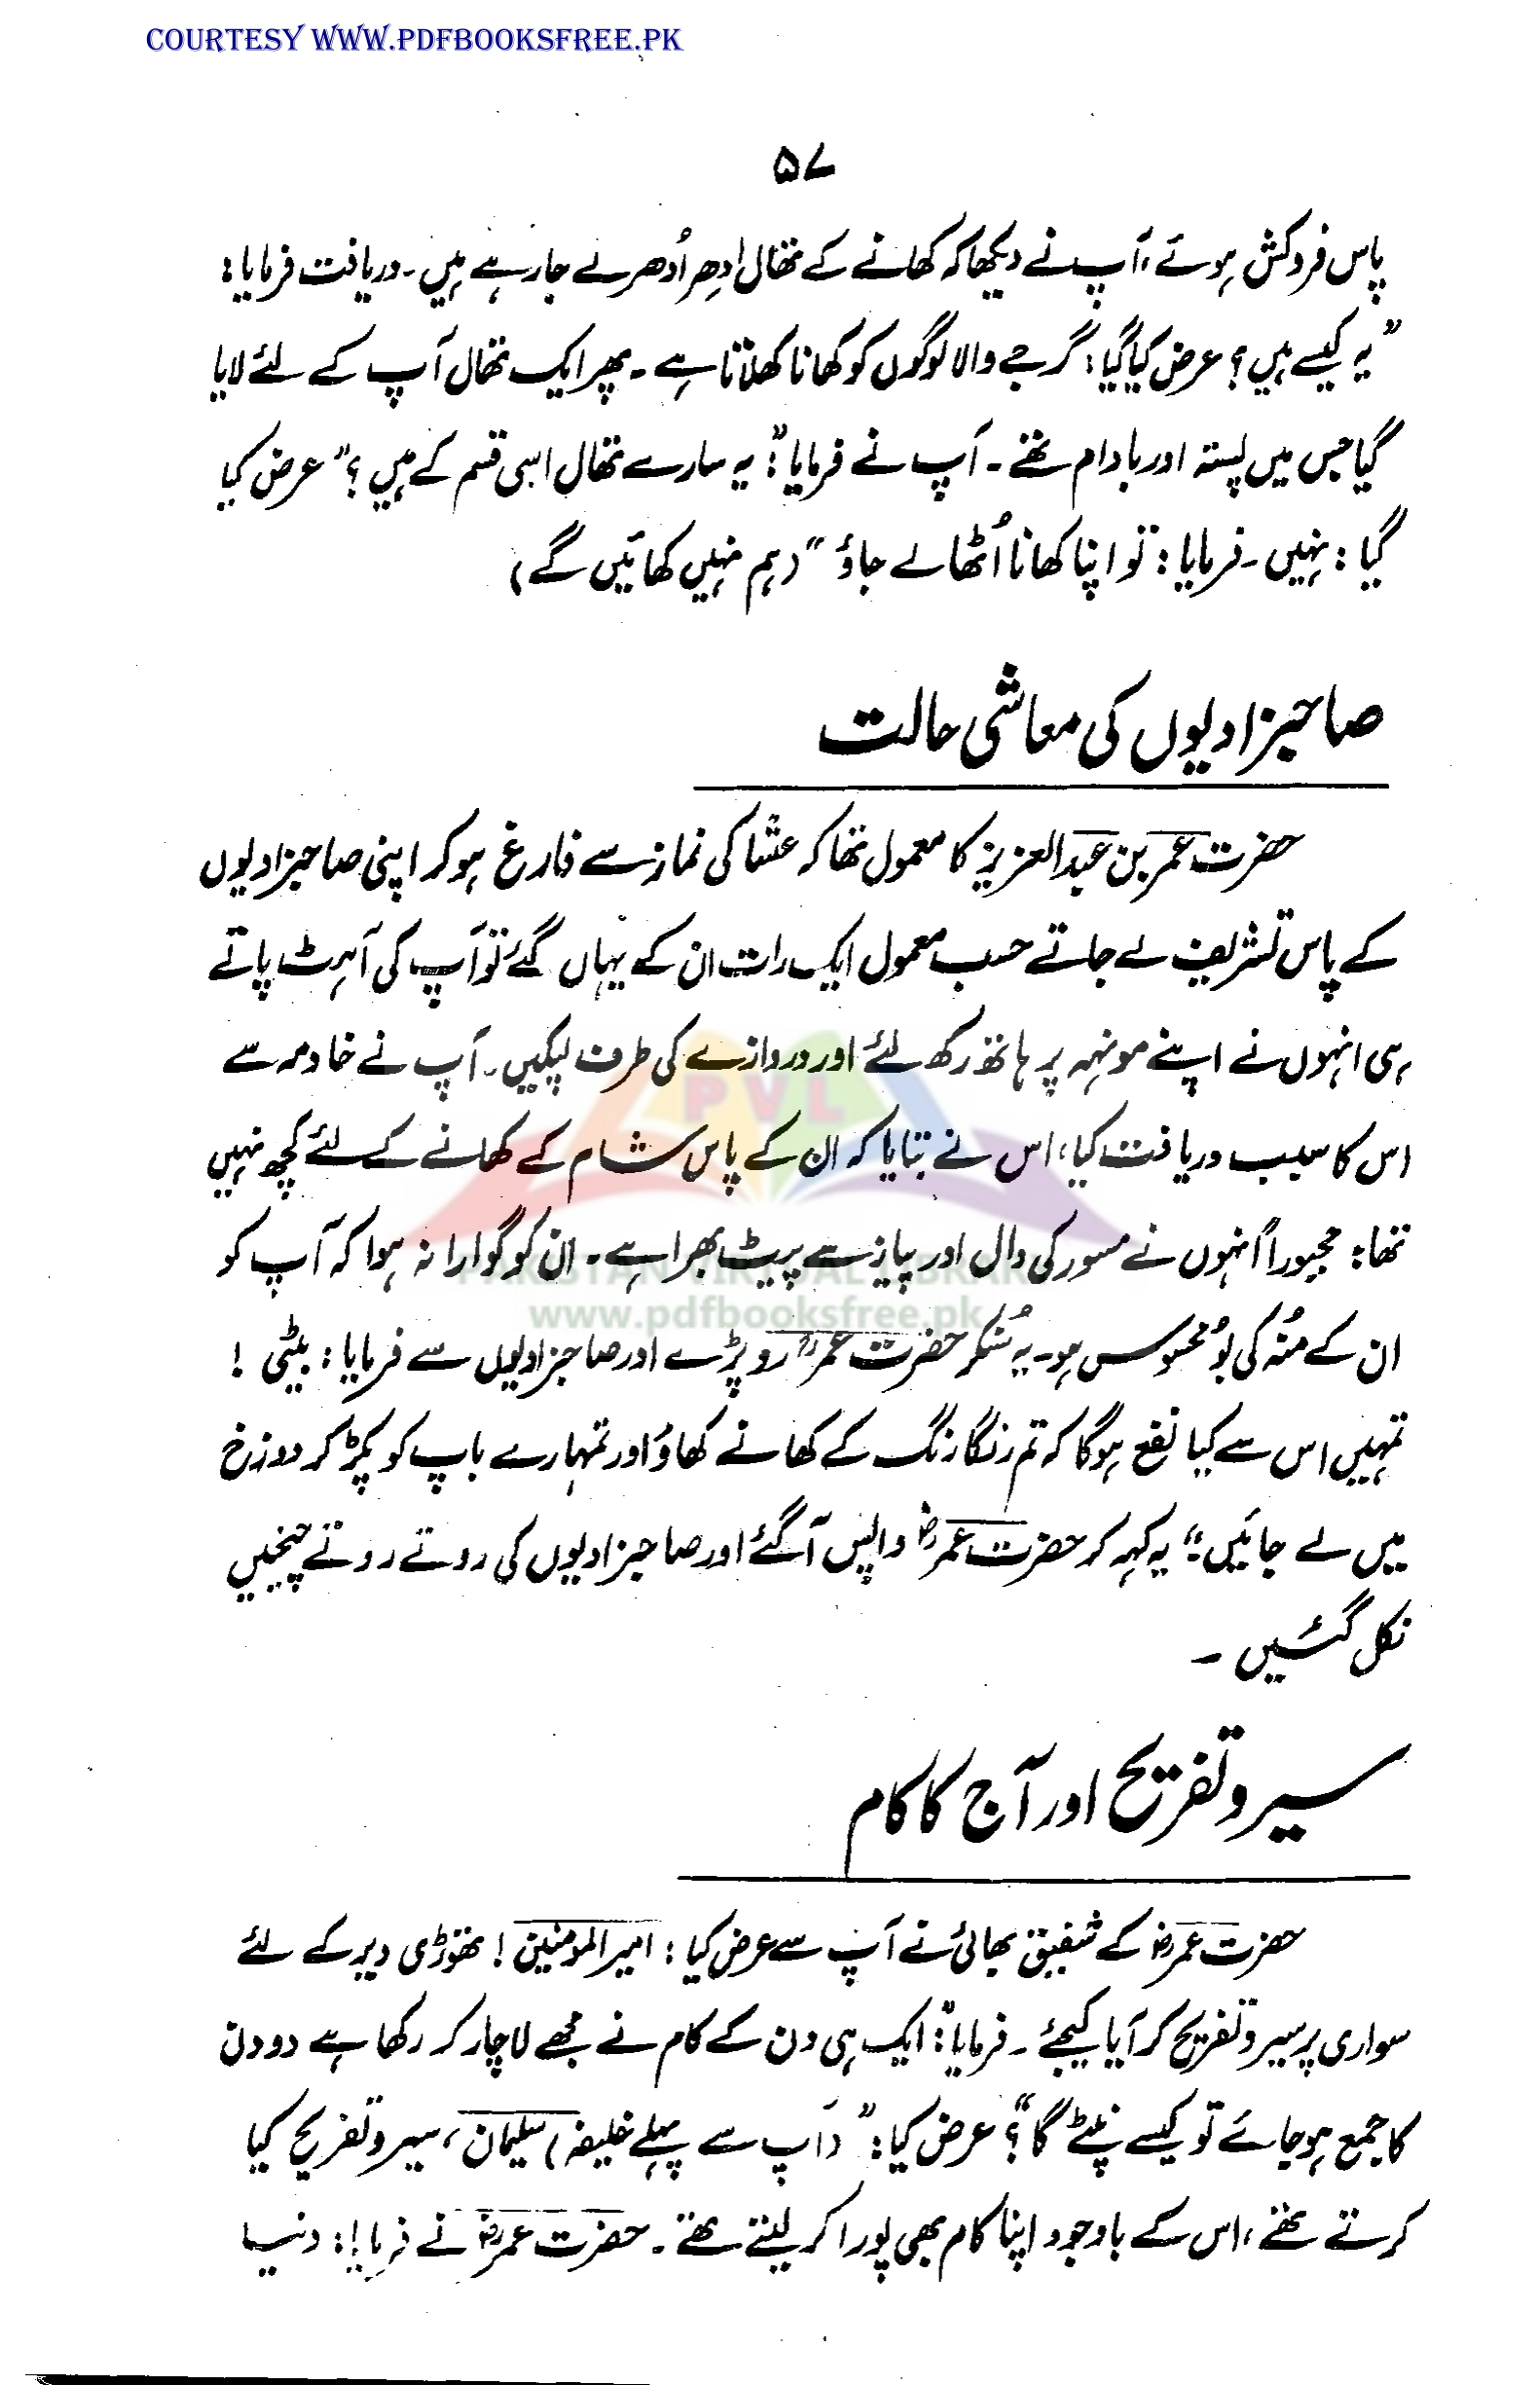 COURTESY WWW.PDFBOOKSFREE.PK
۵۷
پاس فروکش ہوئے، آپ نے دیکھا کہ کھانے کے تھال اِدھر اُدھر لے جا رہے ہیں۔ دریافت فرمایا:
"یہ کیسے ہیں؟ عرض کیا گیا: گرجے والا لوگوں کو کھانا کھلاتا ہے۔ پھر ایک تھال آپ کے لئے لایا
گیا جس میں پستہ اور بادام تھے۔ آپ نے فرمایا: "یہ سارے تھال اسی قسم کے ہیں؟" عرض کیا
گیا: نہیں۔ فرمایا: "تو اپنا کھانا اُٹھا لے جاؤ" (ہم نہیں کھائیں گے)
صاحبزادیوں کی معاشی حالت
حضرت عمر بن عبدالعزیز کا معمول تھا کہ عشا کی نماز سے فارغ ہو کر اپنی صاحبزادیوں
کے پاس تشریف لے جاتے حسب معمول ایک رات ان کے یہاں گئے تو آپ کی آہٹ پاتے
ہی انہوں نے اپنے مونہہ پر ہاتھ رکھ لئے اور دروازے کی طرف لپکیں۔ آپ نے خادمہ سے
اس کا سبب دریافت کیا، اس نے بتایا کہ ان کے پاس شام کے کھانے کے لئے کچھ نہیں
تھا: مجبوراً انہوں نے مسور کی دال اور پیاز سے پیٹ بھرا ہے۔ ان کو گوارا نہ ہوا کہ آپ کو
ان کے مُنہ کی بُو محسوس ہو۔ یہ سُنکر حضرت عمرؓ رو پڑے اور صاحبزادیوں سے فرمایا: بیٹی!
تمہیں اس سے کیا نفع ہوگا کہ تم رنگا رنگ کے کھانے کھاؤ اور تمہارے باپ کو پکڑ کر دوزخ
میں لے جائیں؟" یہ کہہ کر حضرت عمرؓ واپس آگئے اور صاحبزادیوں کی روتے روتے چیخیں
نکل گئیں۔
سیر و تفریح اور آج کا کام
حضرت عمرؓ کے شفیق بھائی نے آپ سے عرض کیا: امیر المومنین! تھوڑی دیر کے لئے
سواری پر سیر و تفریح کر آیا کیجئے۔ فرمایا: "ایک ہی دن کے کام نے مجھے لاچار کر رکھا ہے دو دن
کا جمع ہو جائے تو کیسے نپٹے گا؟" عرض کیا: "(آپ سے پہلے خلیفہ) سلیمان، سیر و تفریح کیا
کرتے تھے، اس کے باوجود اپنا کام بھی پورا کر لیتے تھے۔ حضرت عمرؓ نے فرمایا: دنیا
PVL
PAKISTAN VIRTUAL LIBRARY
www.pdfbooksfree.pk